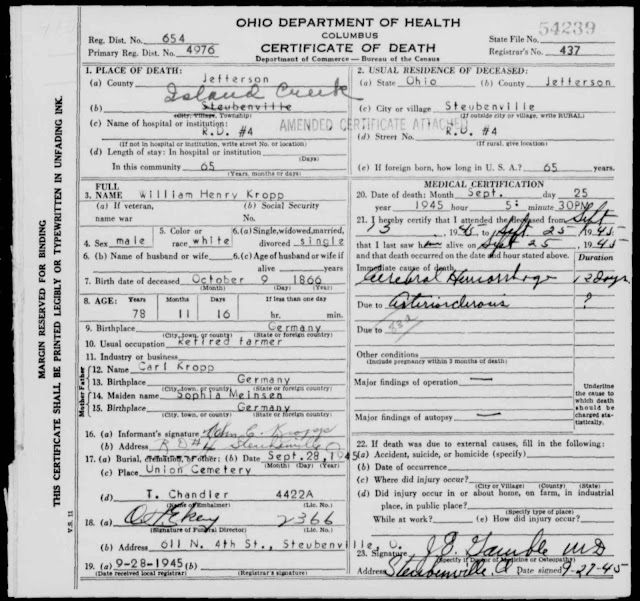 OHIO DEPARTMENT OF HEALTH
COLUMBUS
CERTIFICATE OF DEATH
Department of Commerce — Bureau of the Census
Reg. Dist. No. 654
Primary Reg. Dist. No. 4976
54239
State File No.
Registrar's No. 437
MARGIN RESERVED FOR BINDING
THIS CERTIFICATE SHALL BE PRINTED LEGIBLY OR TYPEWRITTEN IN UNFADING INK.
V.S. 11
1. PLACE OF DEATH:
(a) County Jefferson
Island Creek
(b) Steubenville
(City, Village, Township)
(c) Name of hospital or institution:
R.D. #4
(If not in hospital or institution, write street No. or location)
(d) Length of stay: In hospital or institution
(Days)
In this community 65
(Years, months or days)
2. USUAL RESIDENCE OF DECEASED:
(a) State Ohio (b) County Jefferson
(c) City or village Steubenville
(If outside city or village, write RURAL)
AMENDED CERTIFICATE ATTACHED
(d) Street No. R.D. #4
(If rural, give location)
(e) If foreign born, how long in U. S. A.? 65 years.
3. FULL NAME William Henry Kropp
(a) If veteran, name war
(b) Social Security No.
4. Sex male
5. Color or race white
6.(a) Single, widowed, married, divorced single
6. (b) Name of husband or wife
6.(c) Age of husband or wife if alive years
7. Birth date of deceased October 9 1866
(Month) (Day) (Year)
8. AGE: Years Months Days If less than one day
78 11 16 hr. min.
9. Birthplace Germany
(City, town, or county) (State or foreign country)
10. Usual occupation Retired farmer
11. Industry or business
Father
12. Name Carl Kropp
13. Birthplace Germany
(City, town, or county) (State or foreign country)
Mother
14. Maiden name Sophia Meinsen
15. Birthplace Germany
(City, town, or county) (State or foreign country)
16. (a) Informant's signature Kropp
(b) Address R D #4 Steubenville O
17. (a) Burial, cremation, or other (b) Date Sept. 28, 1945
(Month) (Day) (Year)
(c) Place Union Cemetery
(d) T. Chandler 4422A
(Name of Embalmer) (Lic. No.)
18. (a) 2366
(Signature of Funeral Director) (Lic. No.)
(b) Address 611 N. 4th St., Steubenville, O.
19. (a) 9-28-1945 (b)
(Date received local registrar) (Registrar's signature)
MEDICAL CERTIFICATION
20. Date of death: Month Sept. day 25
1945 hour 5: minute 30PM
21. I hereby certify that I attended the deceased from Sept
13 1945 to Sept 25, 1945
that I last saw him alive on Sept 25, 1945
and that death occurred on the date and hour stated above.
Duration
Immediate cause of death
Cerebral Hemorrhage 12 Days
Due to ?
Due to
Other conditions
(Include pregnancy within 3 months of death)
Major findings of operation —
Major findings of autopsy —
Underline the cause to which death should be charged statistically.
22. If death was due to external causes, fill in the following:
(a) Accident, suicide, or homicide (specify)
(b) Date of occurrence
(c) Where did injury occur?
(City or village) (County) (State)
(d) Did injury occur in or about home, on farm, in industrial place, in public place?
(Specify type of place)
While at work? (e) How did injury occur?
23. Signature J. E. Gamble MD
(Specify if Doctor of Medicine or Osteopathy)
Address Steubenville O Date signed 9-27-45